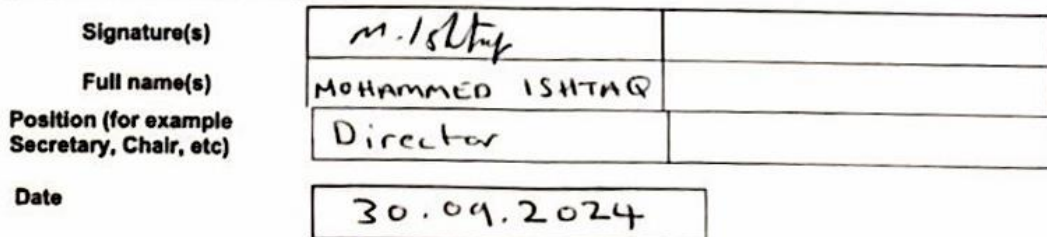 Signature(s) M. Ishtaq
Full name(s) MOHAMMED ISHTAQ
Position (for example
Secretary, Chair, etc) Director
Date 30.09.2024